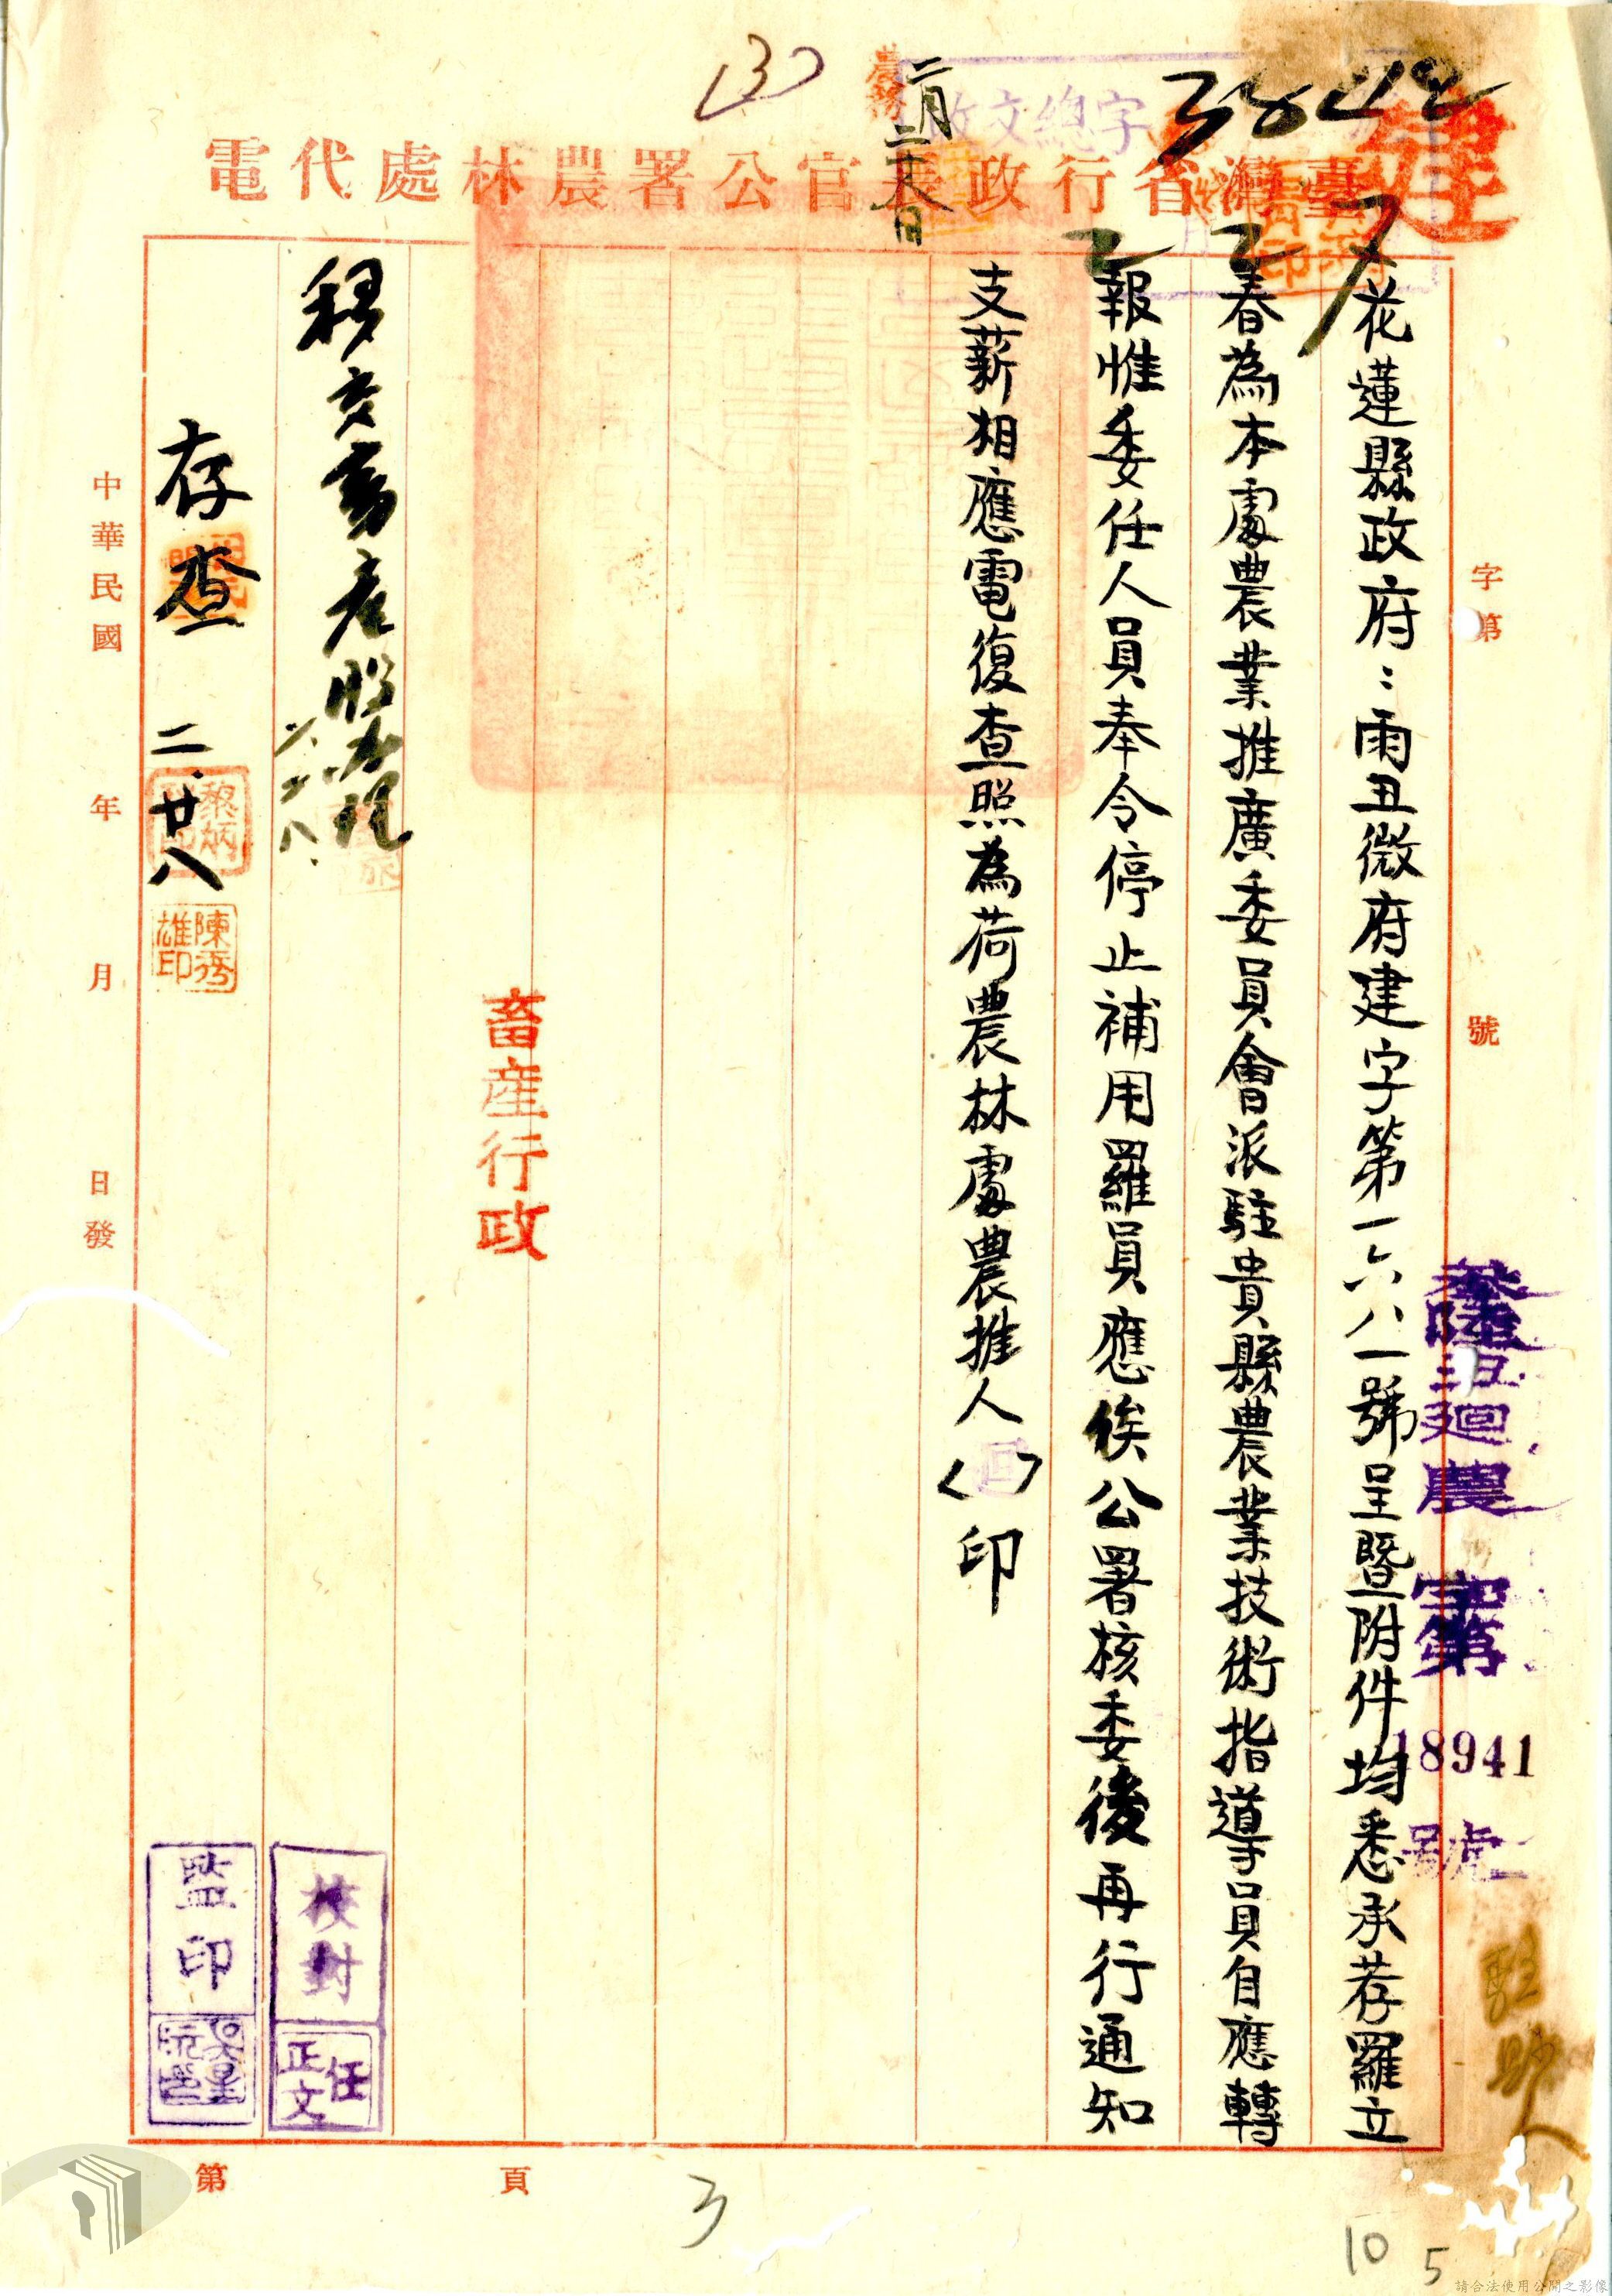 臺灣省行政長官公署農林處代電
建
3842
收文總字
二月二六日
農務
字第 號
花蓮縣政府：雨丑微府建字第一六八一號呈暨附件均悉承荐羅立
春為本處農業推廣委員會派駐貴縣農業技術指導員自應轉
報惟委任人員奉令停止補用羅員應俟公署核委後再行通知
支薪相應電復查照為荷農林處農推人（回）印
畜產行政
移交畜產股辦理
二、二八、
存查 二、廿八
陳秀雄印
校封
任正文
監印
中華民國 年 月 日發
丑迴農
字第
18941
號
第 頁
3
10 5
請合法使用公開之影像